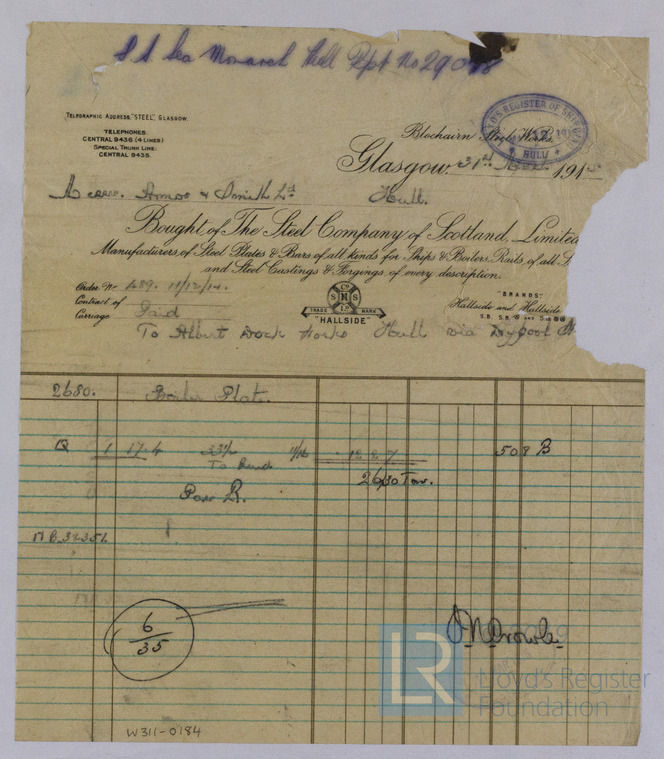 S.S. Sea Monarch Hull Rpt No 29048
TELEGRAPHIC ADDRESS, "STEEL", GLASGOW.
TELEPHONES:
CENTRAL 9436 (4 LINES)
SPECIAL TRUNK LINE:
CENTRAL 9435.
LLOYD'S REGISTER OF SHIPPING
HULL
Blochairn Steel Works,
Glasgow, 31st 191
Messrs. Amos & Smith Ld Hull.
Bought of The Steel Company of Scotland, Limited
Manufacturers of Steel Plates & Bars of all kinds for Ships & Boilers, Rails of all S
and Steel Castings & Forgings of every description.
Order No 489. 11/12/14.
Contract of
Carriage Paid
"BRANDS"
Hallside and Hallside
S.B. S.B.
Co
S H S
LD
TRADE MARK
"HALLSIDE"
To Albert Dock Works Hull via Drypool
2680. Boiler Plate.
Q 1 17.4 33½ 11/16 12 2 7 508 B
To Bend
2630 Tons.
Pass B.
MB 32351.
6
35
LR
Lloyd's Register
Foundation
W311-0184